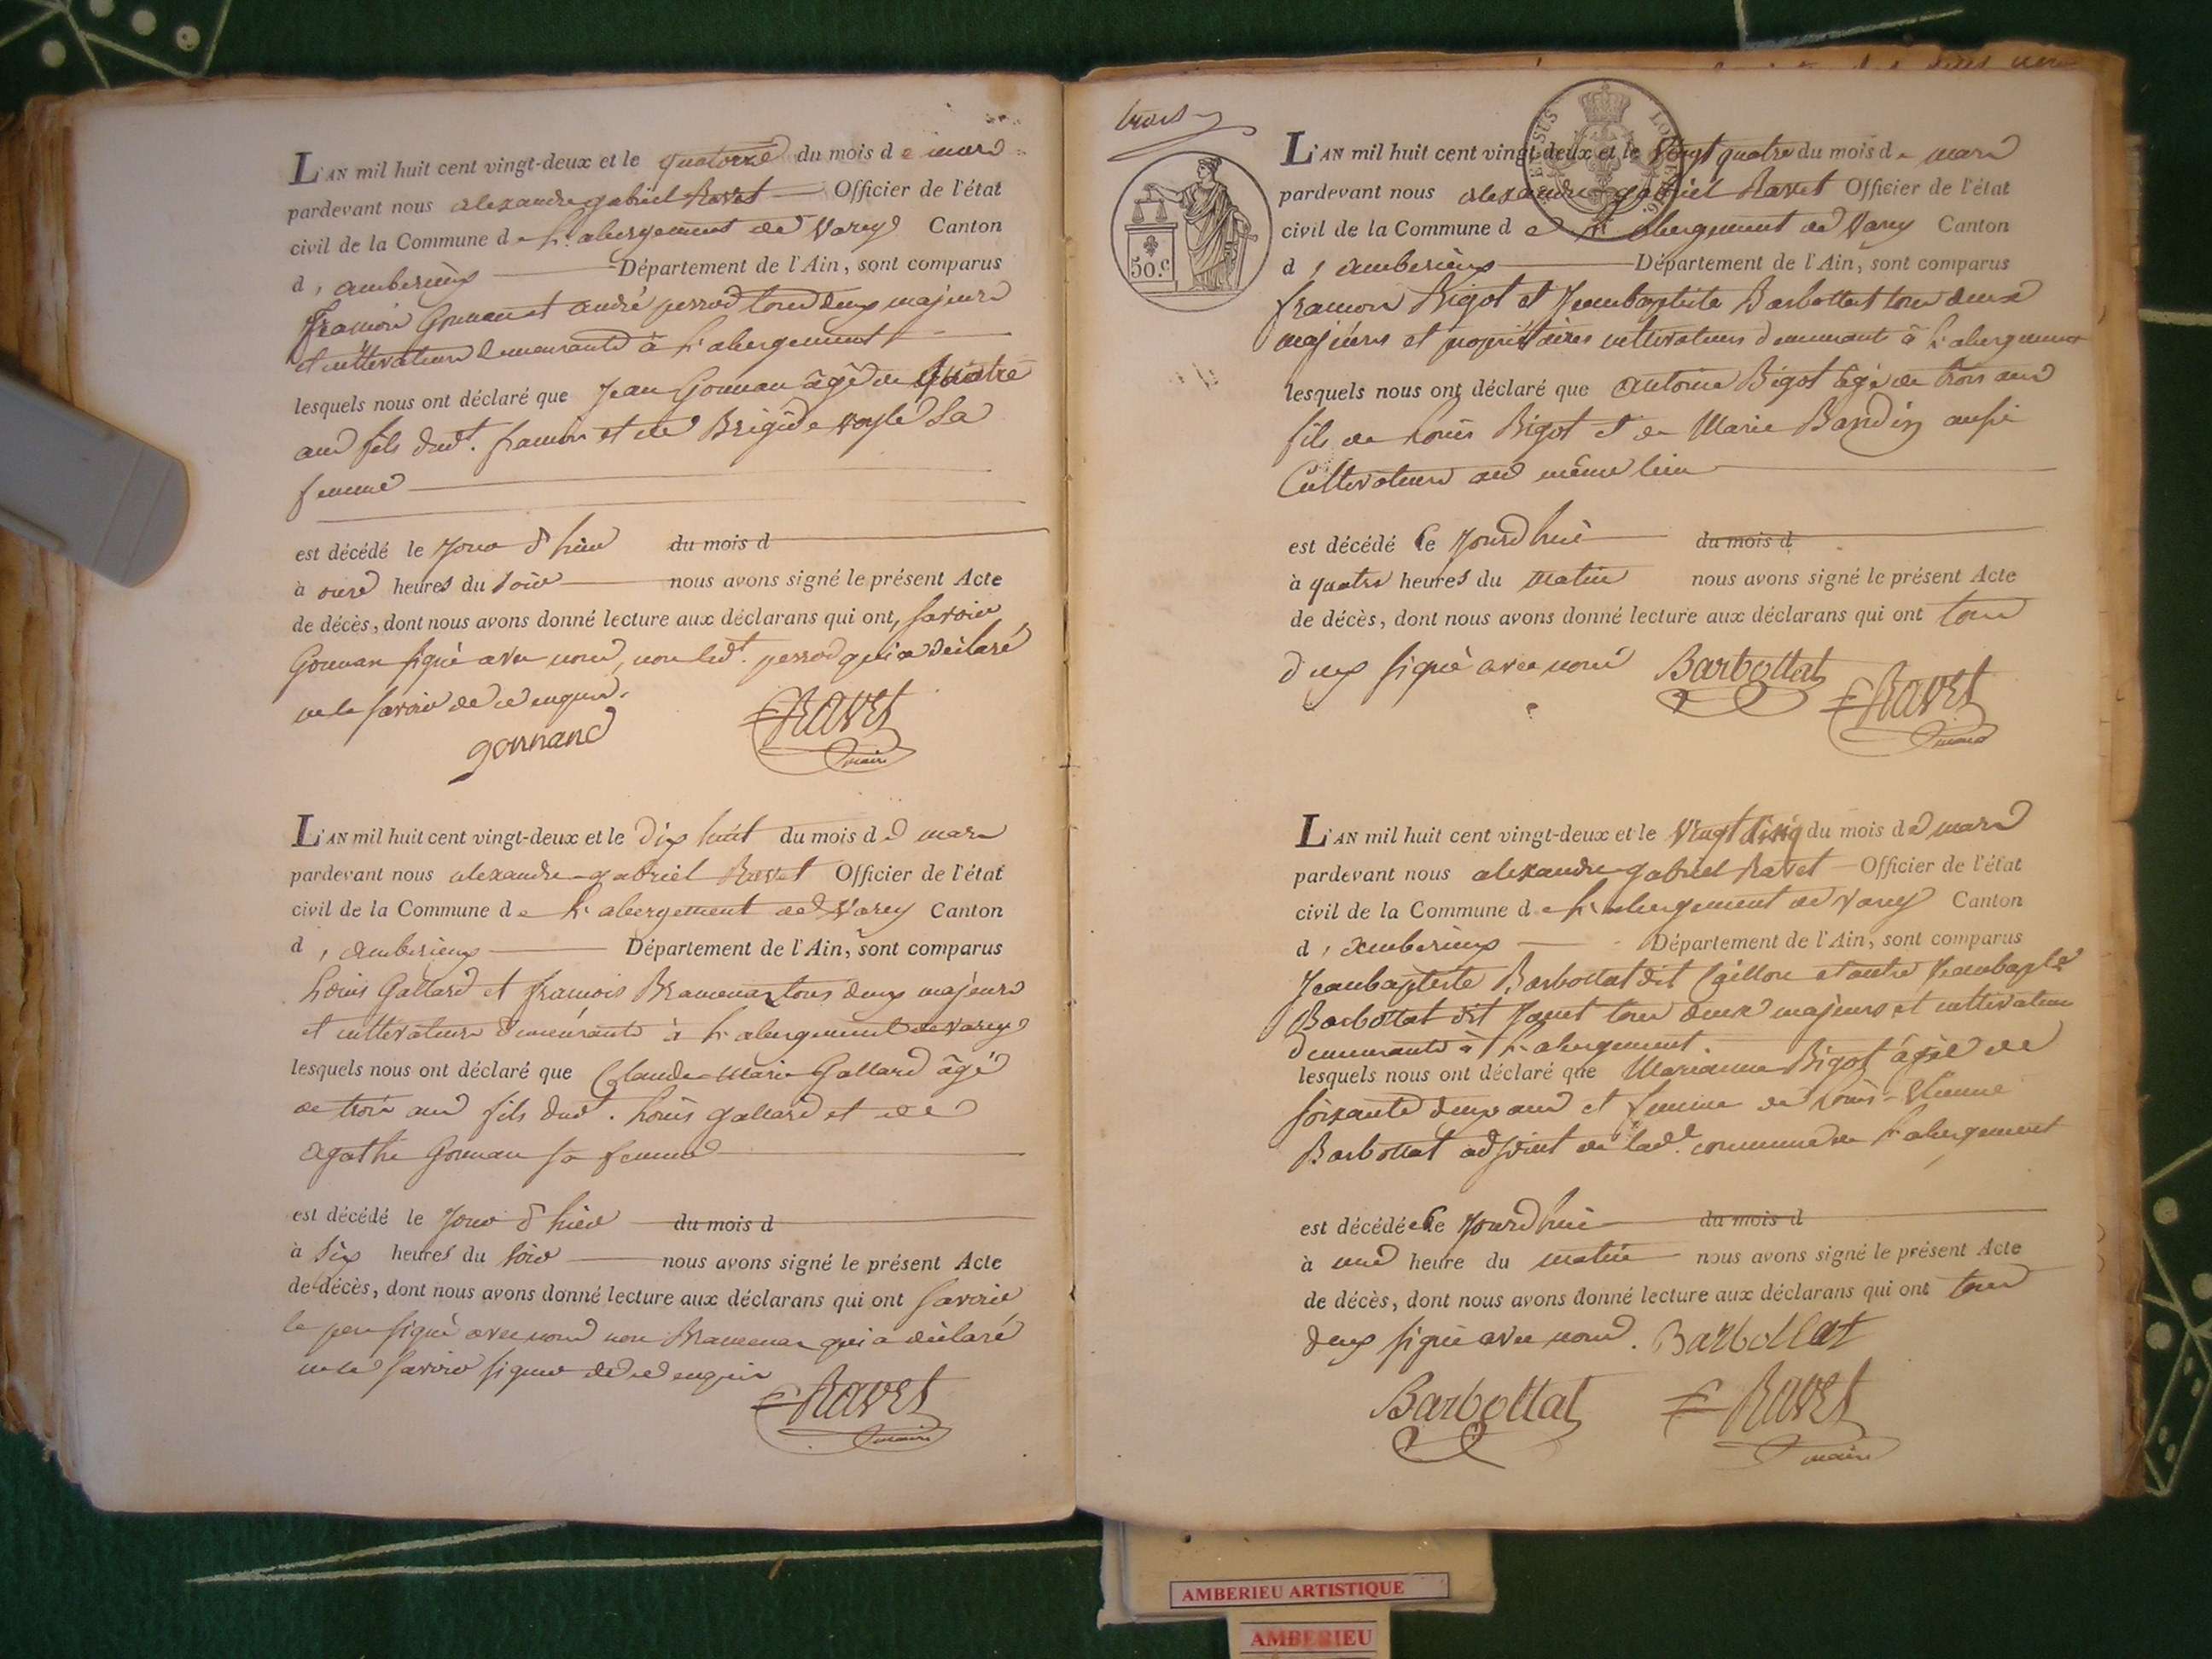 L'AN mil huit cent vingt-deux et le quatorze du mois de mars
pardevant nous alexandre gabriel Ravet Officier de l'état
civil de la Commune de L'abergement de Varey Canton
d'amberieux Département de l'Ain, sont comparus
françois Gonnan et andré perrod tous deux majeurs
et cultivateurs demeurants à L'abergement
lesquels nous ont déclaré que Jean Gonnan âgé de Quatre
ans fils dudt. françois et de Brigide sa
femme
est décédé le Jour d'hier du mois d
à onze heures du soir nous avons signé le présent Acte
de décès, dont nous avons donné lecture aux déclarans qui ont, savoir
Gonnan signé avec nous, non ledt. perrod qui a déclaré
ne le savoir de ce enquis.
gonnand Ravet
maire
L'AN mil huit cent vingt-deux et le dix huit du mois de mars
pardevant nous alexandre gabriel Ravet Officier de l'état
civil de la Commune de L'abergement de Varey Canton
d'amberieux Département de l'Ain, sont comparus
Louis Gallard et françois Bramenan tous deux majeurs
et cultivateurs demeurants à L'abergement de varey
lesquels nous ont déclaré que Claude Marie Gallard âgé
de trois ans fils dudt. Louis gallard et de
Agathe Gonnan sa femme
est décédé le Jour d'hier du mois d
à six heures du soir nous avons signé le présent Acte
de décès, dont nous avons donné lecture aux déclarans qui ont savoir
le pere signé avec nous non Bramenan qui a déclaré
ne le savoir signer de ce enquis
Ravet
maire
trois
50.c
L'AN mil huit cent vingt-deux et le vingt quatre du mois de mars
pardevant nous alexandre gabriel Ravet Officier de l'état
civil de la Commune de L'abergement de Varey Canton
d'amberieux Département de l'Ain, sont comparus
françois Bigot et Jeanbaptiste Barbottat tous deux
majeurs et propriétaires cultivateurs demeurants à L'abergement
lesquels nous ont déclaré que Antoine Bigot âgé de trois ans
fils de Louis Bigot et de Marie Bandin aussi
Cultivateurs au même lieu
est décédé Ce Jourd'hui du mois d
à quatre heures du matin nous avons signé le présent Acte
de décès, dont nous avons donné lecture aux déclarans qui ont tous
deux signé avec nous Barbottat
Ravet
maire
L'AN mil huit cent vingt-deux et le vingt cinq du mois de mars
pardevant nous alexandre gabriel Ravet Officier de l'état
civil de la Commune de L'abergement de Varey Canton
d'amberieux Département de l'Ain, sont comparus
Jeanbaptiste Barbottat dit et autre Jeanbapte
Barbottat dit Janet tous deux majeurs et cultivateurs
demeurants à L'abergement
lesquels nous ont déclaré que Marianne Bigot âgée de
soixante deux ans et femme de Louis-Etienne
Barbottat adjoint de lade. commune de L'abergement
est décédée Ce Jourd'hui du mois d
à une heure du matin nous avons signé le présent Acte
de décès, dont nous avons donné lecture aux déclarans qui ont tous
deux signé avec nous. Barbottat
Barbottat Ravet
maire
AMBERIEU ARTISTIQUE
AMBERIEU